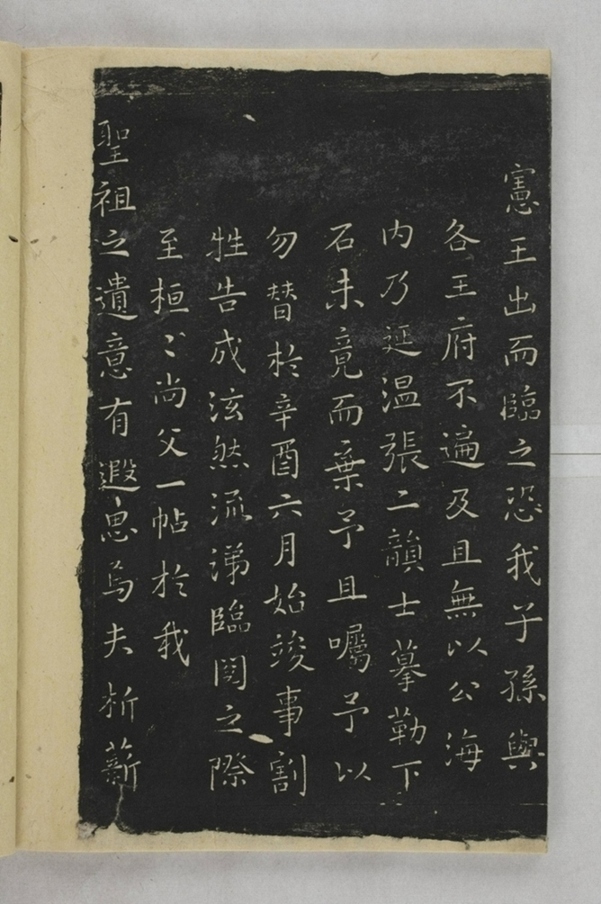 憲王出而臨之恐我子孫與
各王府不遍及且無以公海
内乃延温張二韻士摹勒下
石未竟而棄予且嘱予以
勿替於辛酉六月始竣事割
牲告成泫然流涕臨閲之際
至桓〻尚父一帖於我
聖祖之遺意有遐思焉夫析薪